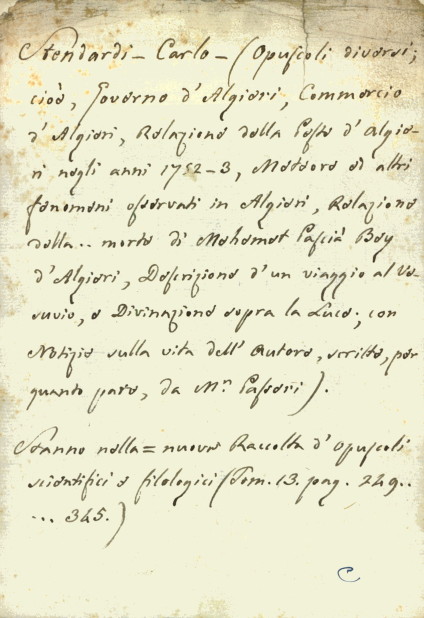 Stendardi - Carlo - (Opuscoli diversi;
cioè, Governo d'Algieri, Commercio
d'Algieri, Relazione della Peste d'Algie-
ri negli anni 1752-3, Meteore ed altri
fenomeni osservati in Algieri, Relazione
della .. morte di Mehemet Pascià Bey
d'Algieri, Descrizione d'un viaggio al Ve-
suvio, e Divinazione sopra la Luce; con
Notizie sulla vita dell'Autore, scritte, per
quanto pare, da M.r Passeri).
Stanno nella = nuova Raccolta d'Opuscoli
scientifici e filologici (Tom. 13. pag. 249..
... 345.)
C